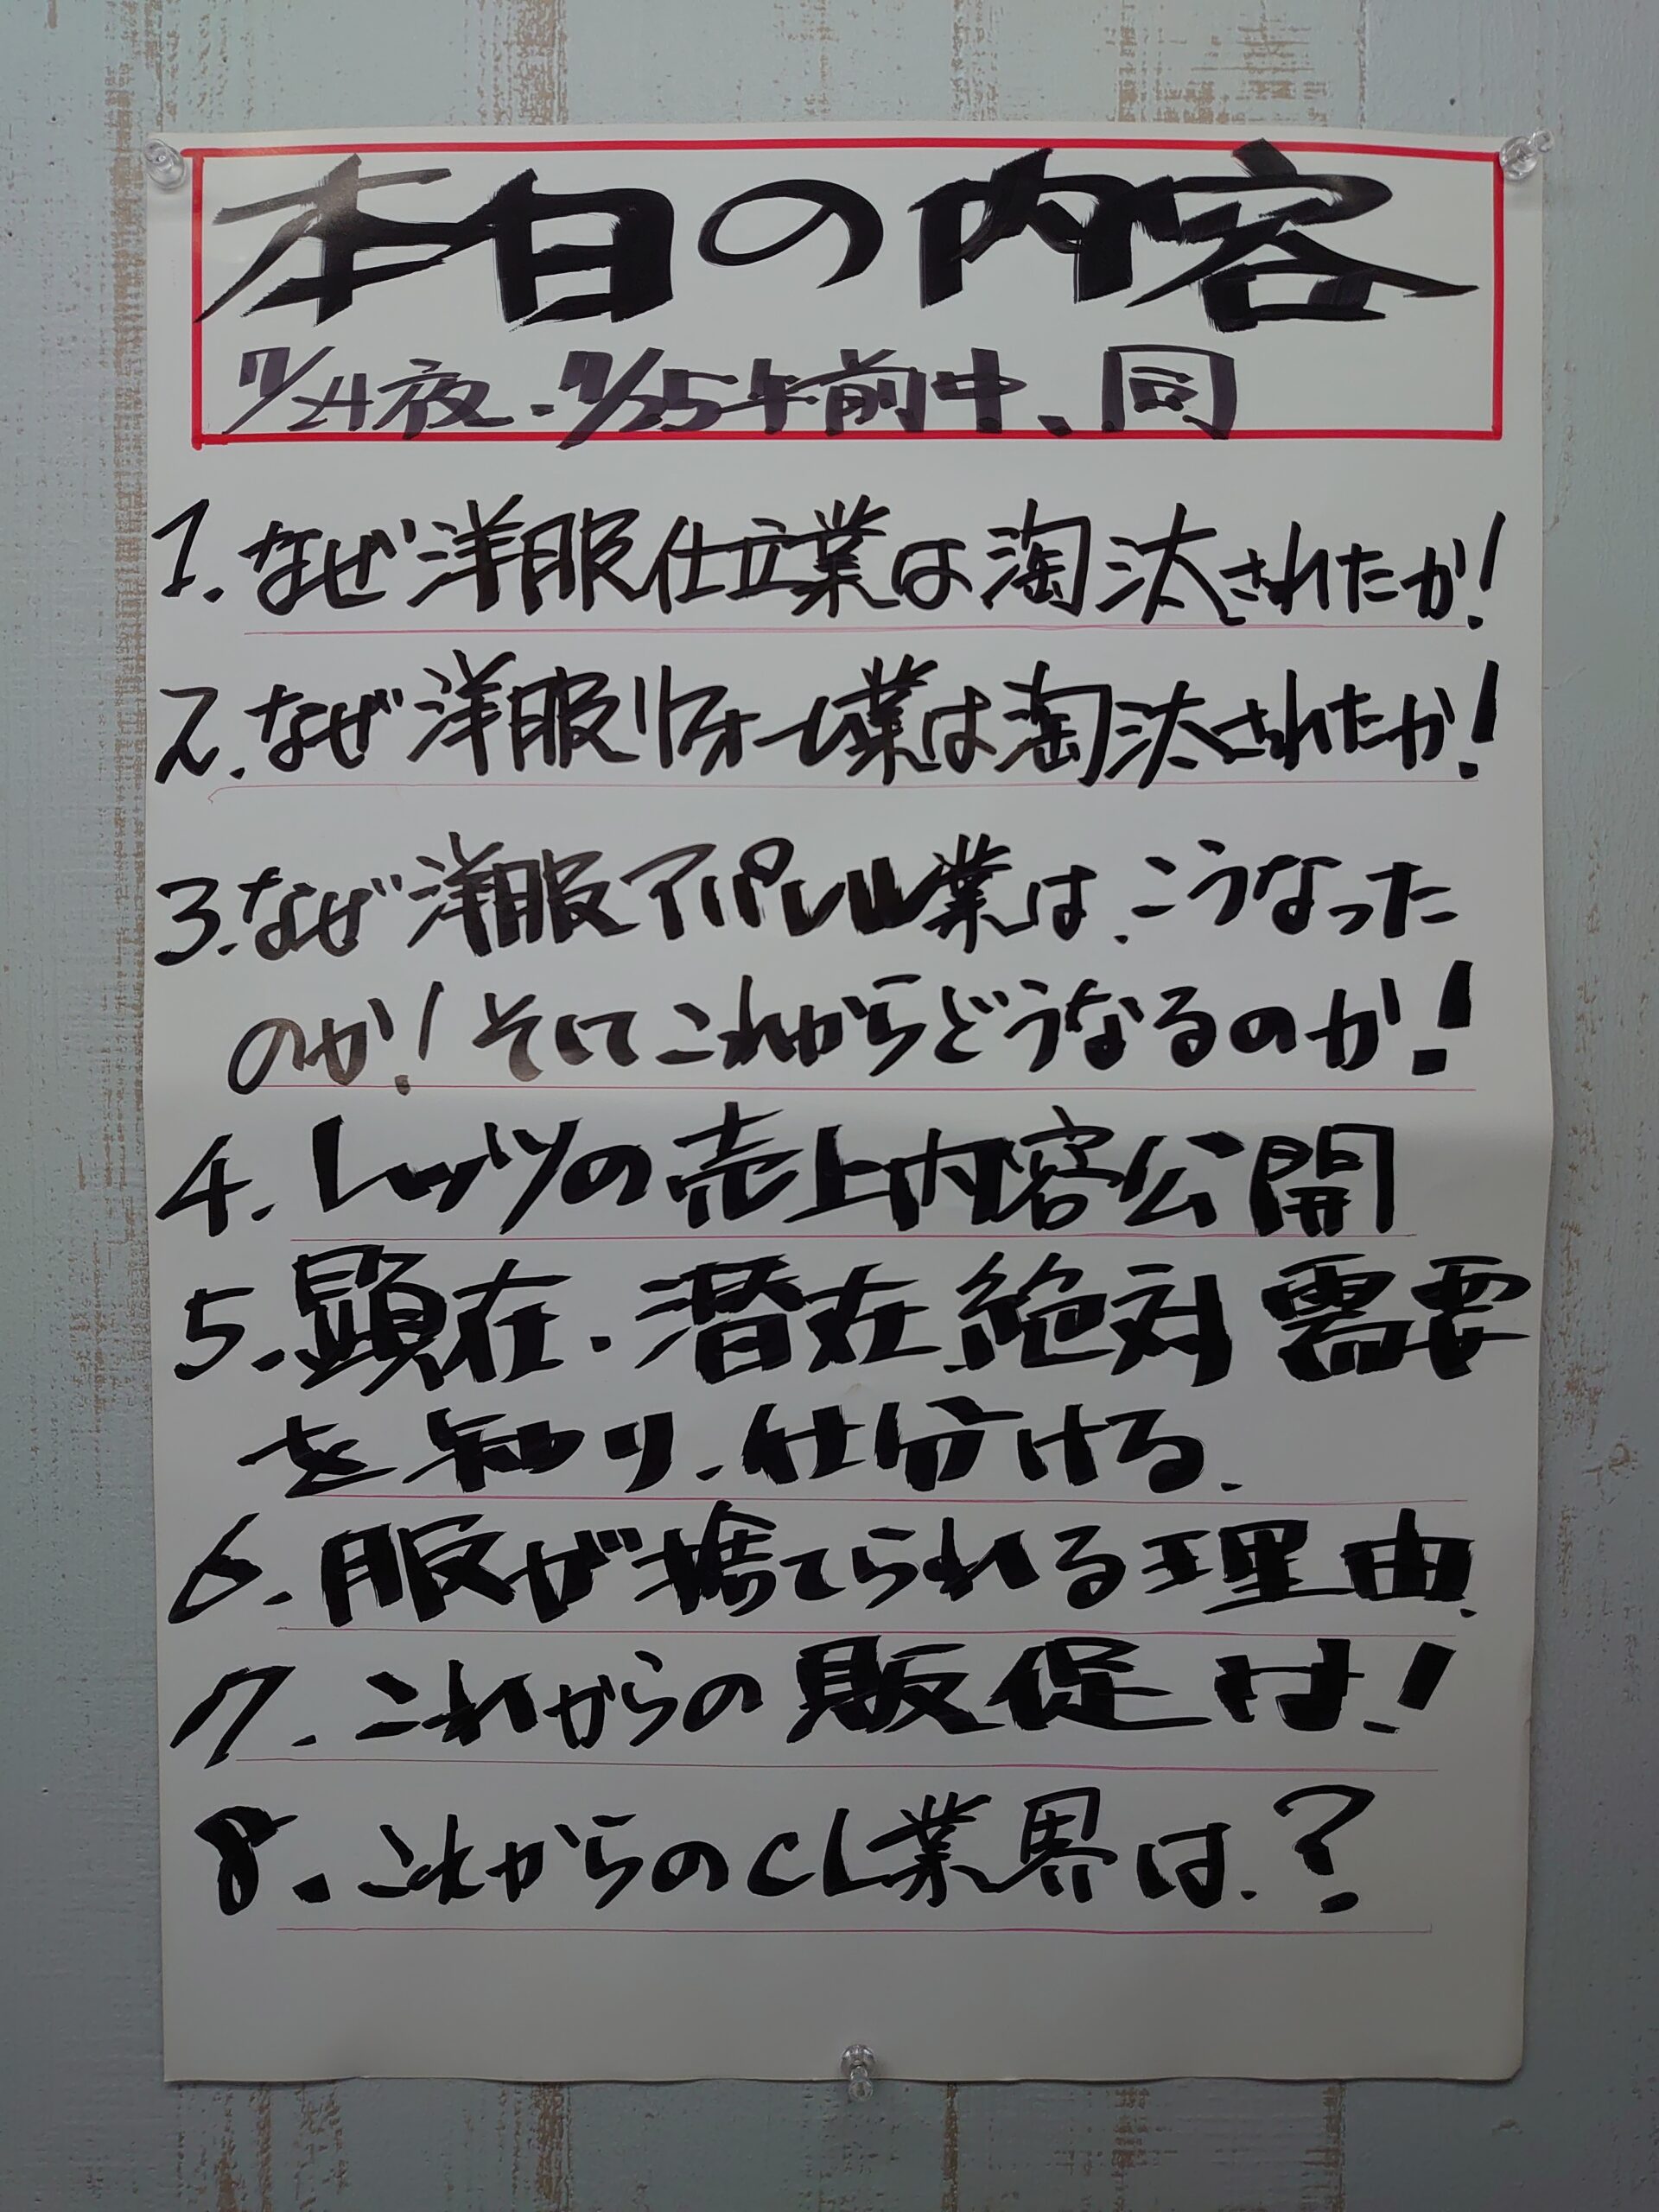 本日の内容
7/24夜、7/25午前中、同
1.なぜ洋服仕立業は淘汰されたか!
2.なぜ洋服リフォーム業は淘汰されたか!
3.なぜ洋服アパレル業は、こうなった
のか!そしてこれからどうなるのか!
4.レッツの売上内容公開
5.顕在・潜在絶対需要
を知り、仕分ける。
6.服が捨てられる理由。
7.これからの販促は!
8.これからのCL業界は、?